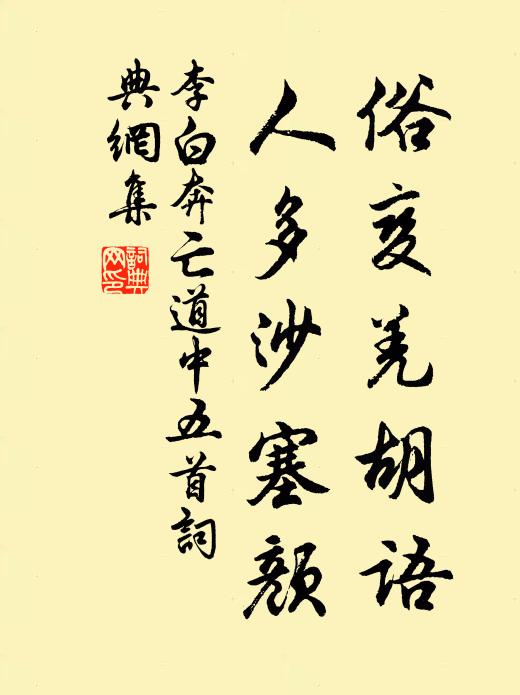 俗变羌胡语
人多沙塞颜
李白奔亡道中五首詞
典網集
詞典
网印